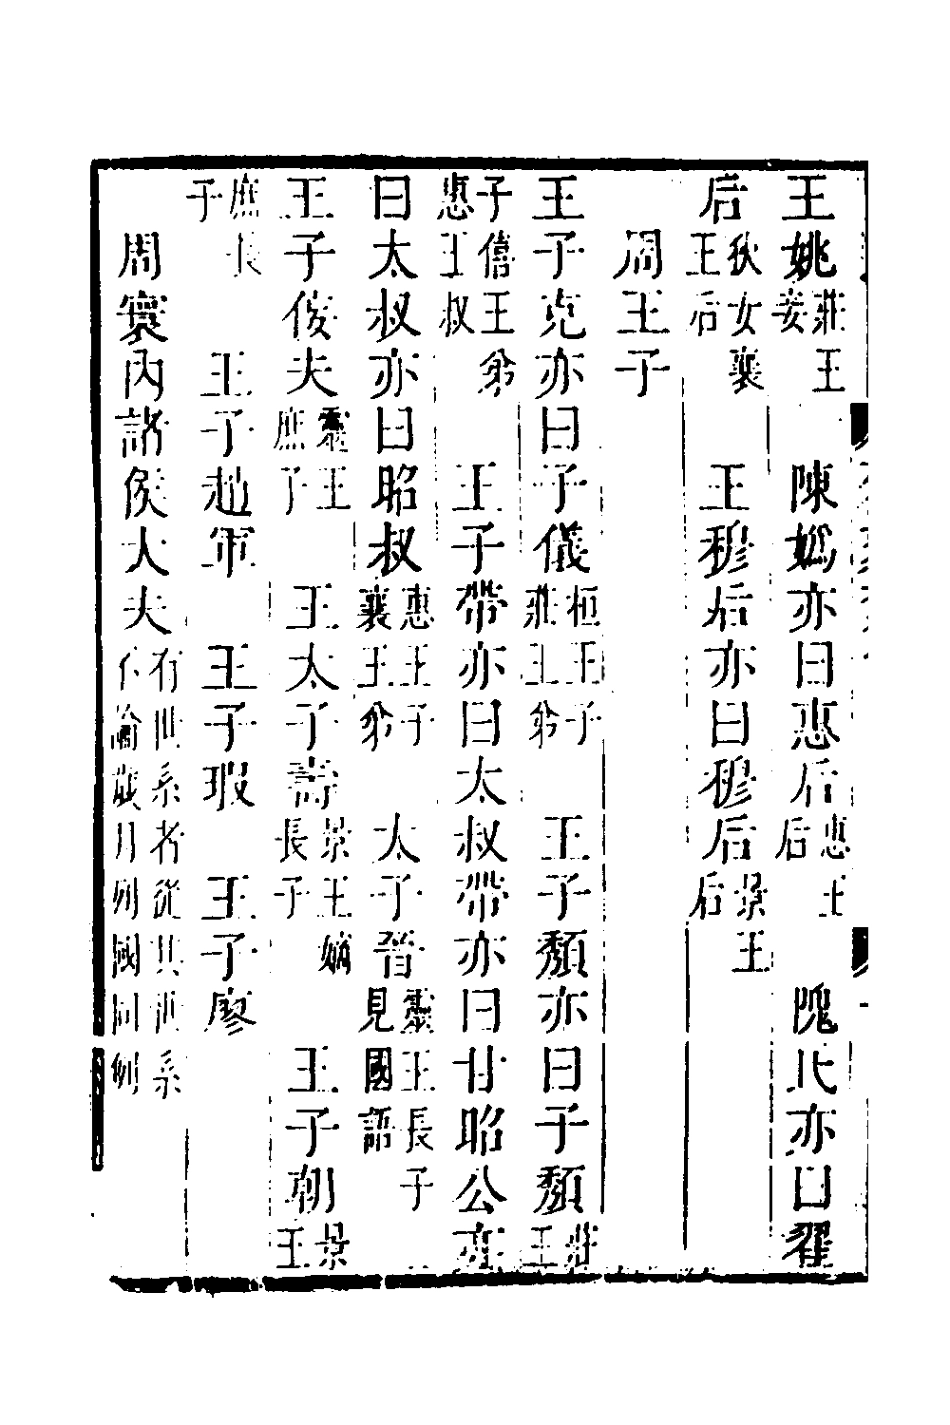 王姚莊王妾　陳嬀亦曰惠后惠王后　隗氏亦曰翟
后狄女襄王后　王穆后亦曰穆后景王后
周王子
王子克亦曰子儀桓王子莊王弟　王子頹亦曰子頹莊王
子僖王弟惠王叔　王子帶亦曰太叔帶亦曰甘昭公亦
曰太叔亦曰昭叔惠王子襄王弟　太子晉靈王長子見國語
王子佞夫靈王庶子　王太子壽景王嫡長子　王子朝景王
庶長子　王子趙車　王子瑕　王子廖
周寰內諸侯大夫有世系者從其世系不論歲月列國同例